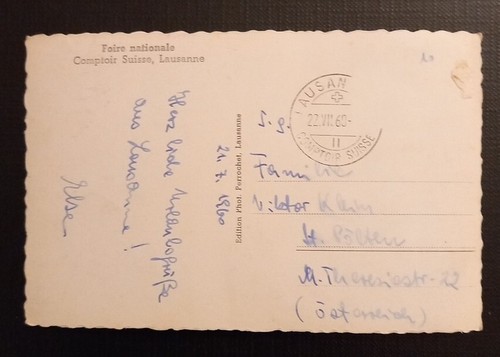 Foire nationale
Comptoir Suisse, Lausanne
Herzliche Urlaubsgrüße
aus Lausanne!
Else
21.7.1960
Edition Phot. Perrochet, Lausanne
LAUSAN
22.VII.60-
11
COMPTOIR SUISSE
10
S. g.
Familie
Viktor Klein
St. Pölten
M. Theresiastr. 22
(Österreich)